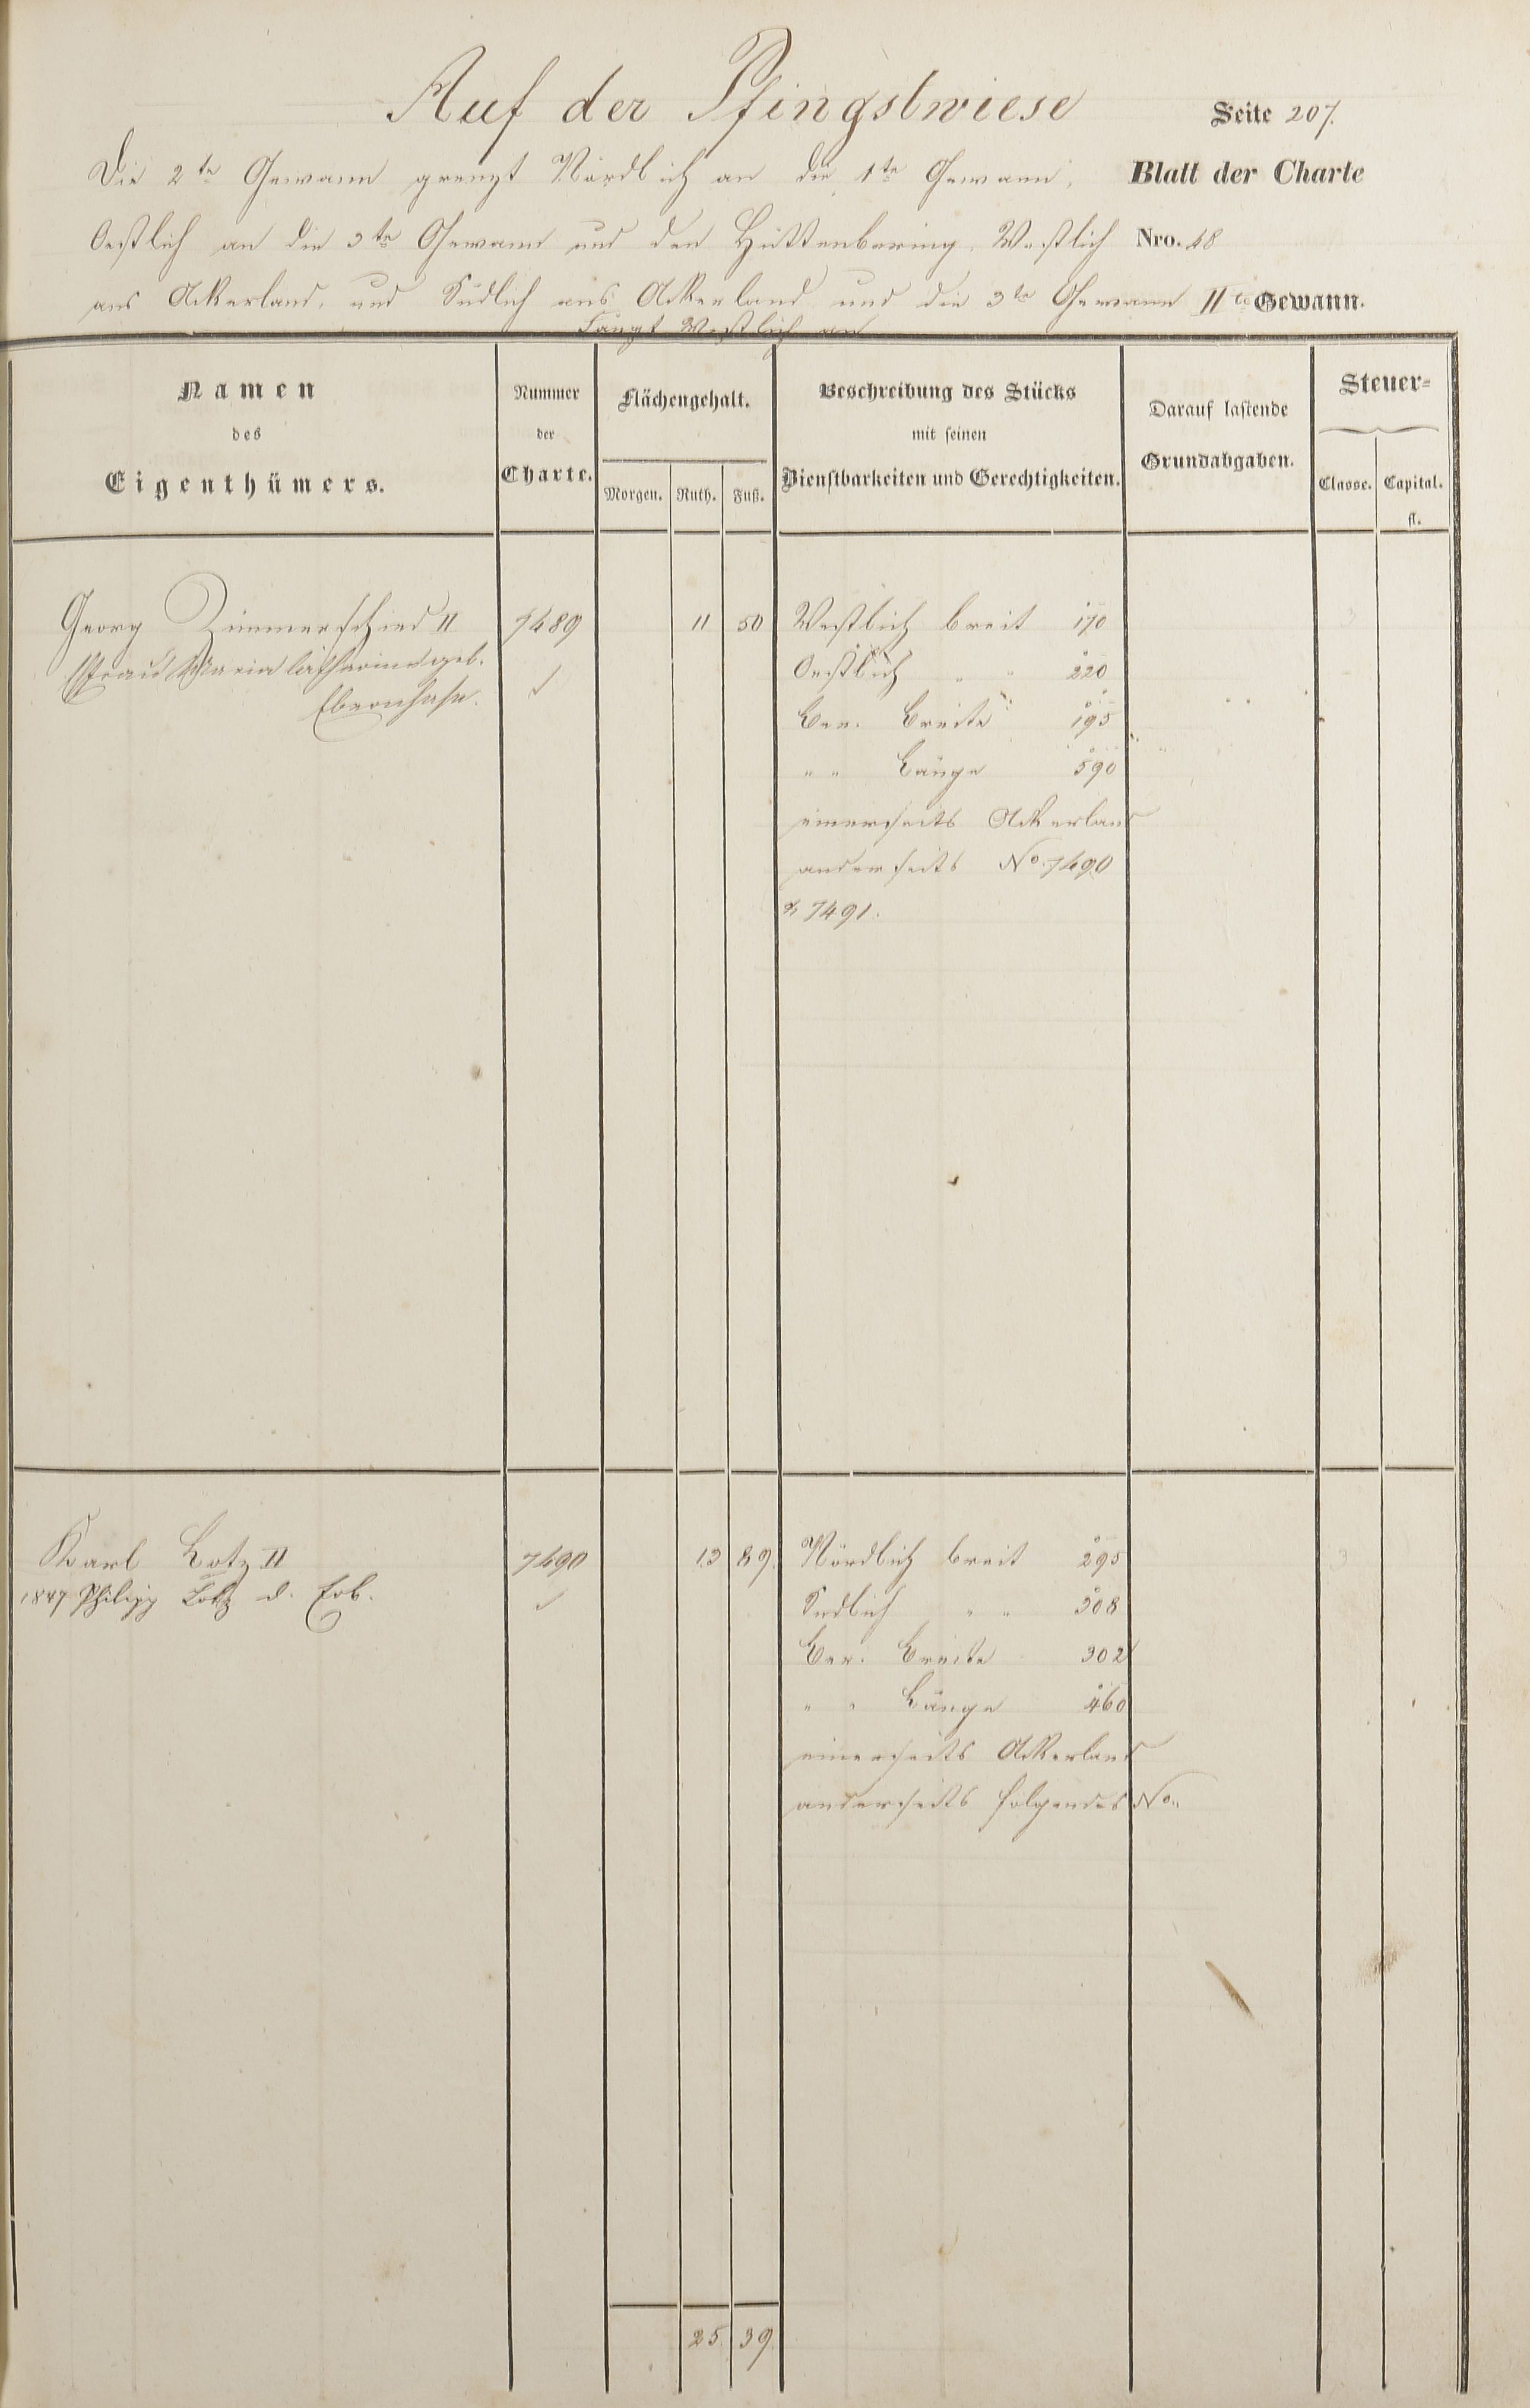 Auf der Pfingstwiese
Seite 207.
Die 2te Gewann grenzt Nördlich an die 1te Gewann,
Blatt der Charte
Oestlich an die 3te Gewann und den Hüttenbering, Westlich
Nro. 48
ans Ackerland, und Südlich ans Ackerland und die 3te Gewann
IIte Gewann.
Fängt Westlich an
Namen
des
Eigenthümers.
Nummer
der
Charte.
Flächengehalt.
Morgen. Ruth. Fuß.
Beschreibung des Stücks
mit seinen
Dienstbarkeiten und Gerechtigkeiten.
Darauf lastende
Grundabgaben.
Steuer-
Classe. Capital.
fl.
Georg Zimmerschied II 7489 11 50 Westlich breit 170 3
Frau Maria Catharina geb. Oestlich " " 220
Ebernhahn. Ber. Breite 195
" " Länge 590
einerseits Ackerland
anderseits No. 7490
& 7491.
Karl Lotz II 7490 13 89 Nördlich breit 295 3
1847 Philipp Lotz d. Erb. Südlich " " 308
Ber. Breite 302
" " Länge 460
einerseits Ackerland
anderseits folgendes No.
25 39